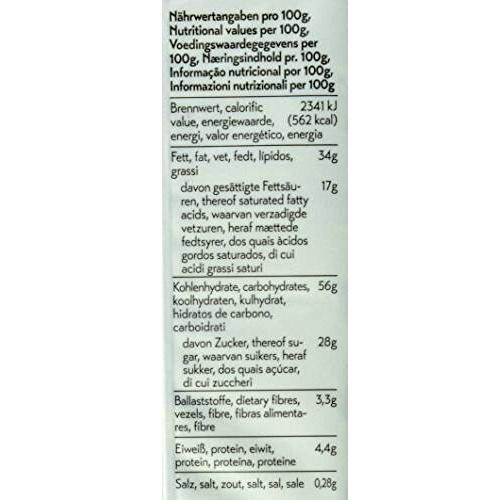 Nährwertangaben pro 100g,
Nutritional values per 100g,
Voedingswaardegegevens per
100g, Næringsindhold pr. 100g,
Informação nutricional por 100g,
Informazioni nutrizionali per 100g
Brennwert, calorific 2341 kJ
value, energiewaarde, (562 kcal)
energi, valor energético, energia
Fett, fat, vet, fedt, lípidos, 34g
grassi
davon gesättigte Fettsäu- 17g
ren, thereof saturated fatty
acids, waarvan verzadigde
vetzuren, heraf mættede
fedtsyrer, dos quais àcidos
gordos saturados, di cui
acidi grassi saturi
Kohlenhydrate, carbohydrates, 56g
koolhydraten, kulhydrat,
hidratos de carbono,
carboidrati
davon Zucker, thereof su- 28g
gar, waarvan suikers, heraf
sukker, dos quais açúcar,
di cui zuccheri
Ballaststoffe, dietary fibres, 3,3g
vezels, fibre, fibras alimenta-
res, fibre
Eiweiß, protein, eiwit, 4,4g
protein, proteína, proteine
Salz, salt, zout, salt, sal, sale 0,28g